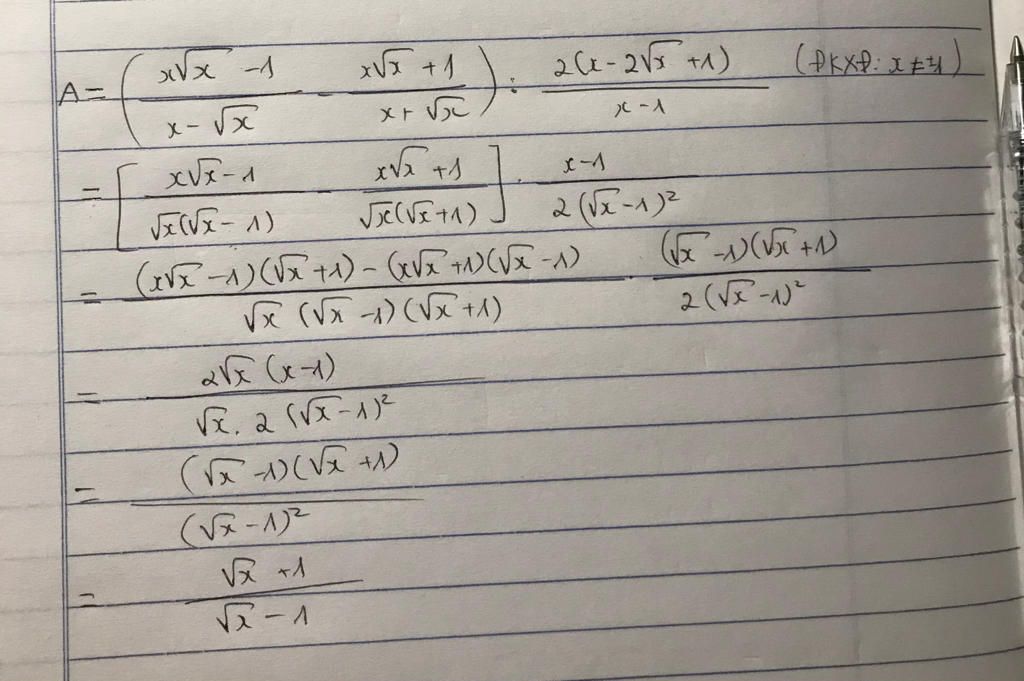 A = ( (x√x - 1)/(x - √x) - (x√x + 1)/(x + √x) ) : 2(x - 2√x + 1)/(x - 1) (ĐKXĐ: x ≠ ±1)
= [ (x√x - 1)/(√x(√x - 1)) - (x√x + 1)/(√x(√x + 1)) ] . (x - 1)/(2(√x - 1)²)
= ((x√x - 1)(√x + 1) - (x√x + 1)(√x - 1))/(√x (√x - 1)(√x + 1)) . ((√x - 1)(√x + 1))/(2(√x - 1)²)
= (2√x (x - 1))/(√x . 2 (√x - 1)²)
= ((√x - 1)(√x + 1))/((√x - 1)²)
= (√x + 1)/(√x - 1)